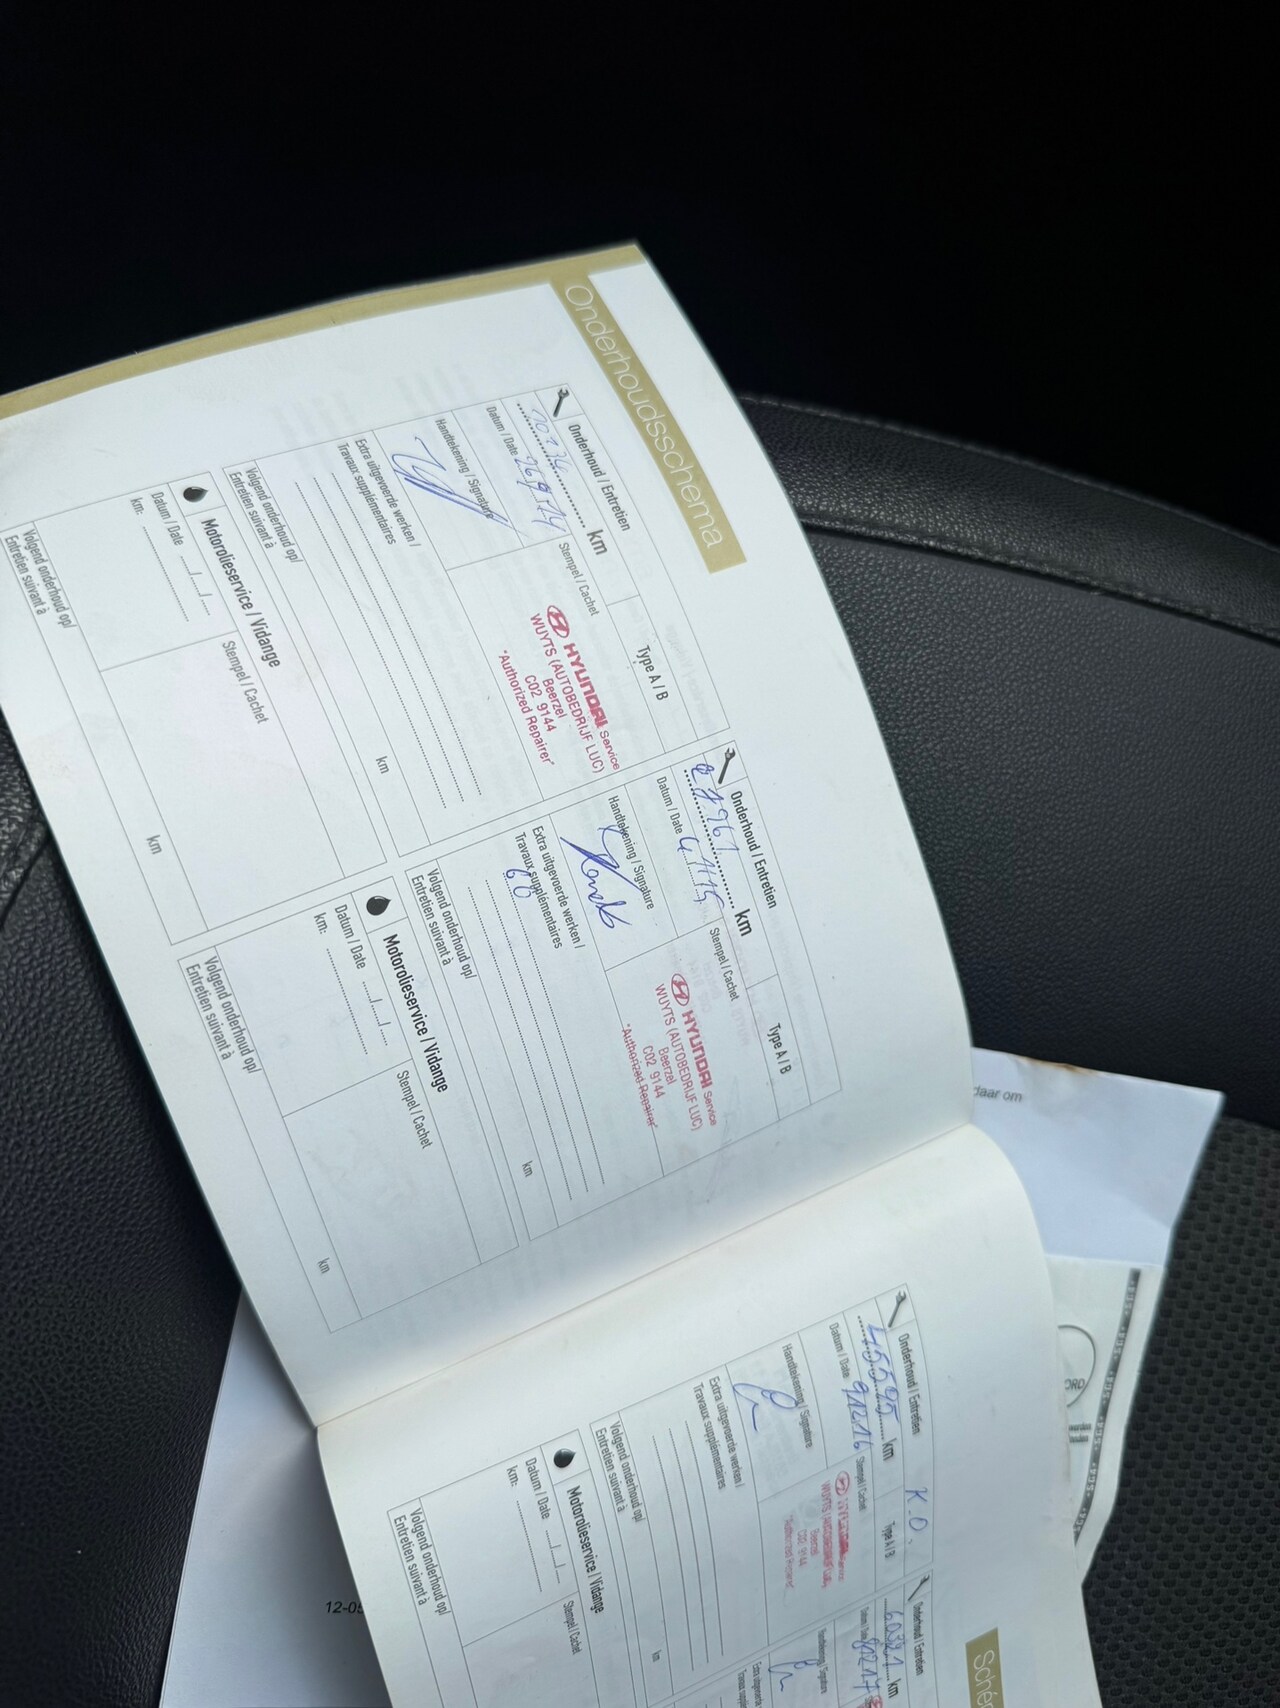 Onderhoudsschema
Onderhoud / Entretien
km
Type A / B
Datum / Date 26/9/14
Stempel / Cachet
Handtekening / Signature
HYUNDAI Service
WUYTS (AUTOBEDRIJF LUC)
Beerzel
C02 9144
"Authorized Repairer"
Extra uitgevoerde werken /
Travaux supplémentaires
Volgend onderhoud op/
Entretien suivant à
km
Motorolieservice / Vidange
Datum / Date ..../..../....
Stempel / Cachet
km:
Volgend onderhoud op/
Entretien suivant à
km
Onderhoud / Entretien
27961 km
Type A / B
Datum / Date
Stempel / Cachet
Handtekening / Signature
HYUNDAI Service
WUYTS (AUTOBEDRIJF LUC)
Beerzel
C02 9144
"Authorized Repairer"
Extra uitgevoerde werken /
Travaux supplémentaires
Volgend onderhoud op/
Entretien suivant à
km
Motorolieservice / Vidange
Datum / Date ..../..../....
Stempel / Cachet
km:
Volgend onderhoud op/
Entretien suivant à
km
K.O.
Onderhoud / Entretien
45595 km
Type A / B
Datum / Date 9/12/16
Stempel / Cachet
Handtekening / Signature
Beerzel
C02 9144
"Authorized Repairer"
Extra uitgevoerde werken /
Travaux supplémentaires
Volgend onderhoud op/
Entretien suivant à
km
Motorolieservice / Vidange
Datum / Date ..../..../....
Stempel / Cachet
km:
Volgend onderhoud op/
Entretien suivant à
Onderhoud / Entretien
60321 km
Datum / Date 8/12/17
Handtekening / Signature
Extra uitgevoerde
Travaux supplé
Sché
daar om
ORD
12-05